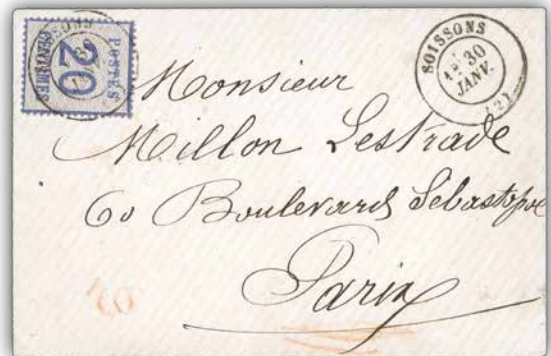 POSTES
20
CENTIMES
SOISSONS
30
JANV.
(2)
Monsieur
Millon Lestrade
60 Boulevard Sébastopol
Paris